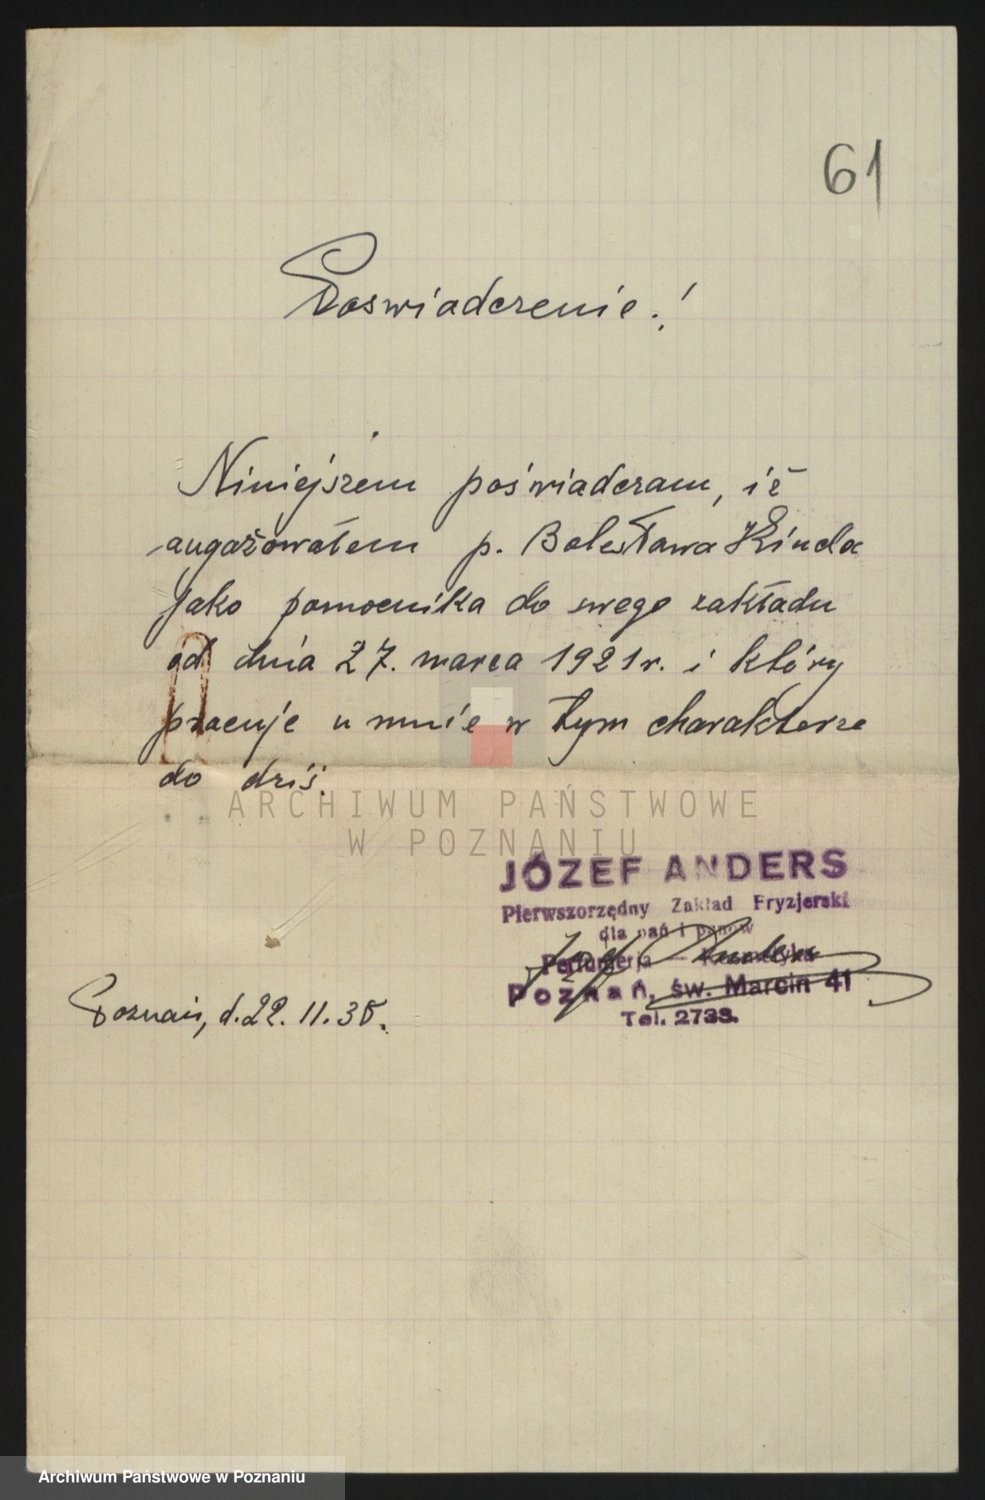 61
Poswiadczenie!
Niniejszem poświadczam, iż
angażowałem p. Bolesława Kinda
jako pomocnika do swego zakładu
od dnia 27. marca 1921 r. i który
pracuje u mnie w tym charakterze
do dziś.
ARCHIWUM PAŃSTWOWE
W POZNANIU
JÓZEF ANDERS
Pierwszorzędny Zakład Fryzjerski
dla pań i panów
Perfumerja — Kosmetyka
Poznań, św. Marcin 41
Tel. 2733.
Józef Anders
Poznań, d. 22. 11. 38.
Archiwum Państwowe w Poznaniu